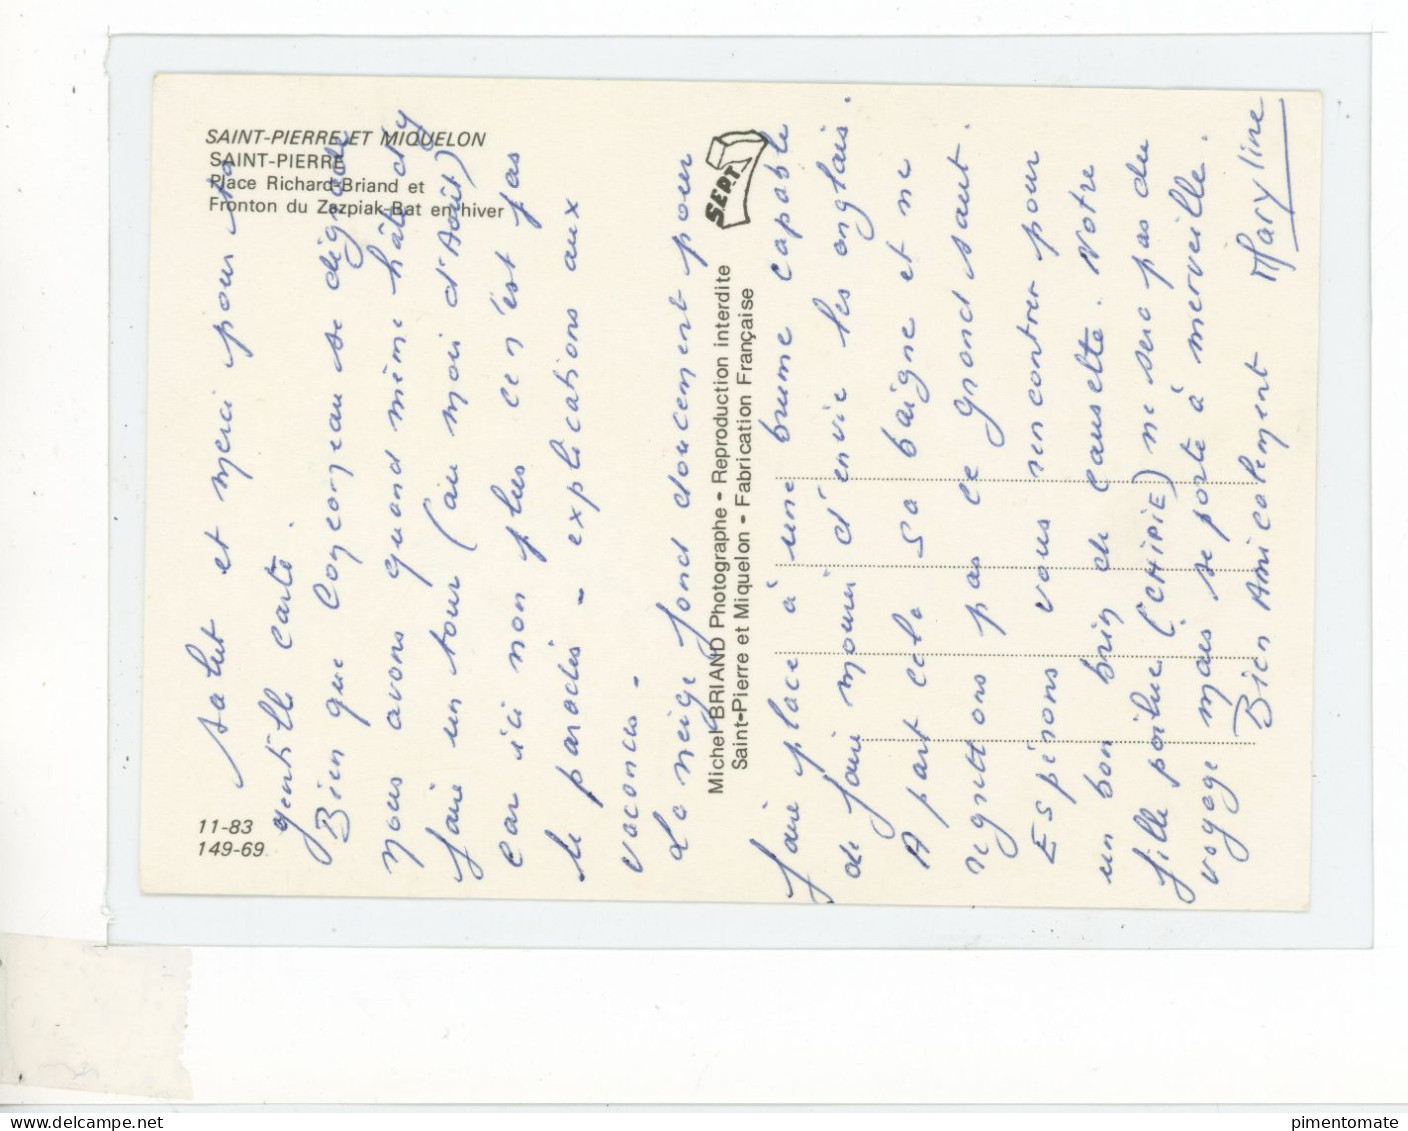 SAINT-PIERRE ET MIQUELON
SAINT-PIERRE
Place Richard-Briand et
Fronton du Zazpiak-Bat en hiver
11-83
149-69
S.E.P.T.
Michel BRIAND Photographe - Reproduction interdite
Saint-Pierre et Miquelon - Fabrication Française
Salut et merci pour ta
gentille carte.
Bien que Concarneau se
nous avons quand même hâte d'y
faire un tour (au mois d'Août)
Car ici non plus ce n'est pas
le paradis - explications aux
vacances -
La neige fond doucement pour
faire place à une brume capable
de faire mourir d'envie les anglais.
A part cela ça baigne et ne
regrettons pas ce grand saut.
Espérons vous rencontrer pour
un bon brin de causette. Notre
fille poilue (CHIPIE) ne sera pas du
voyage mais se porte à merveille.
Bien Amicalement Maryline
pimentomate
delcampe.net